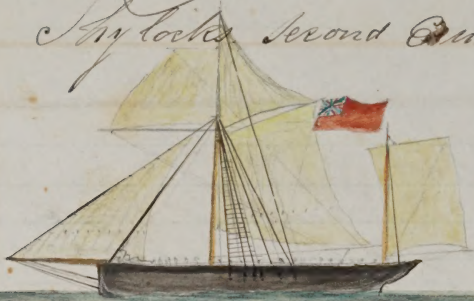 Shylocks second